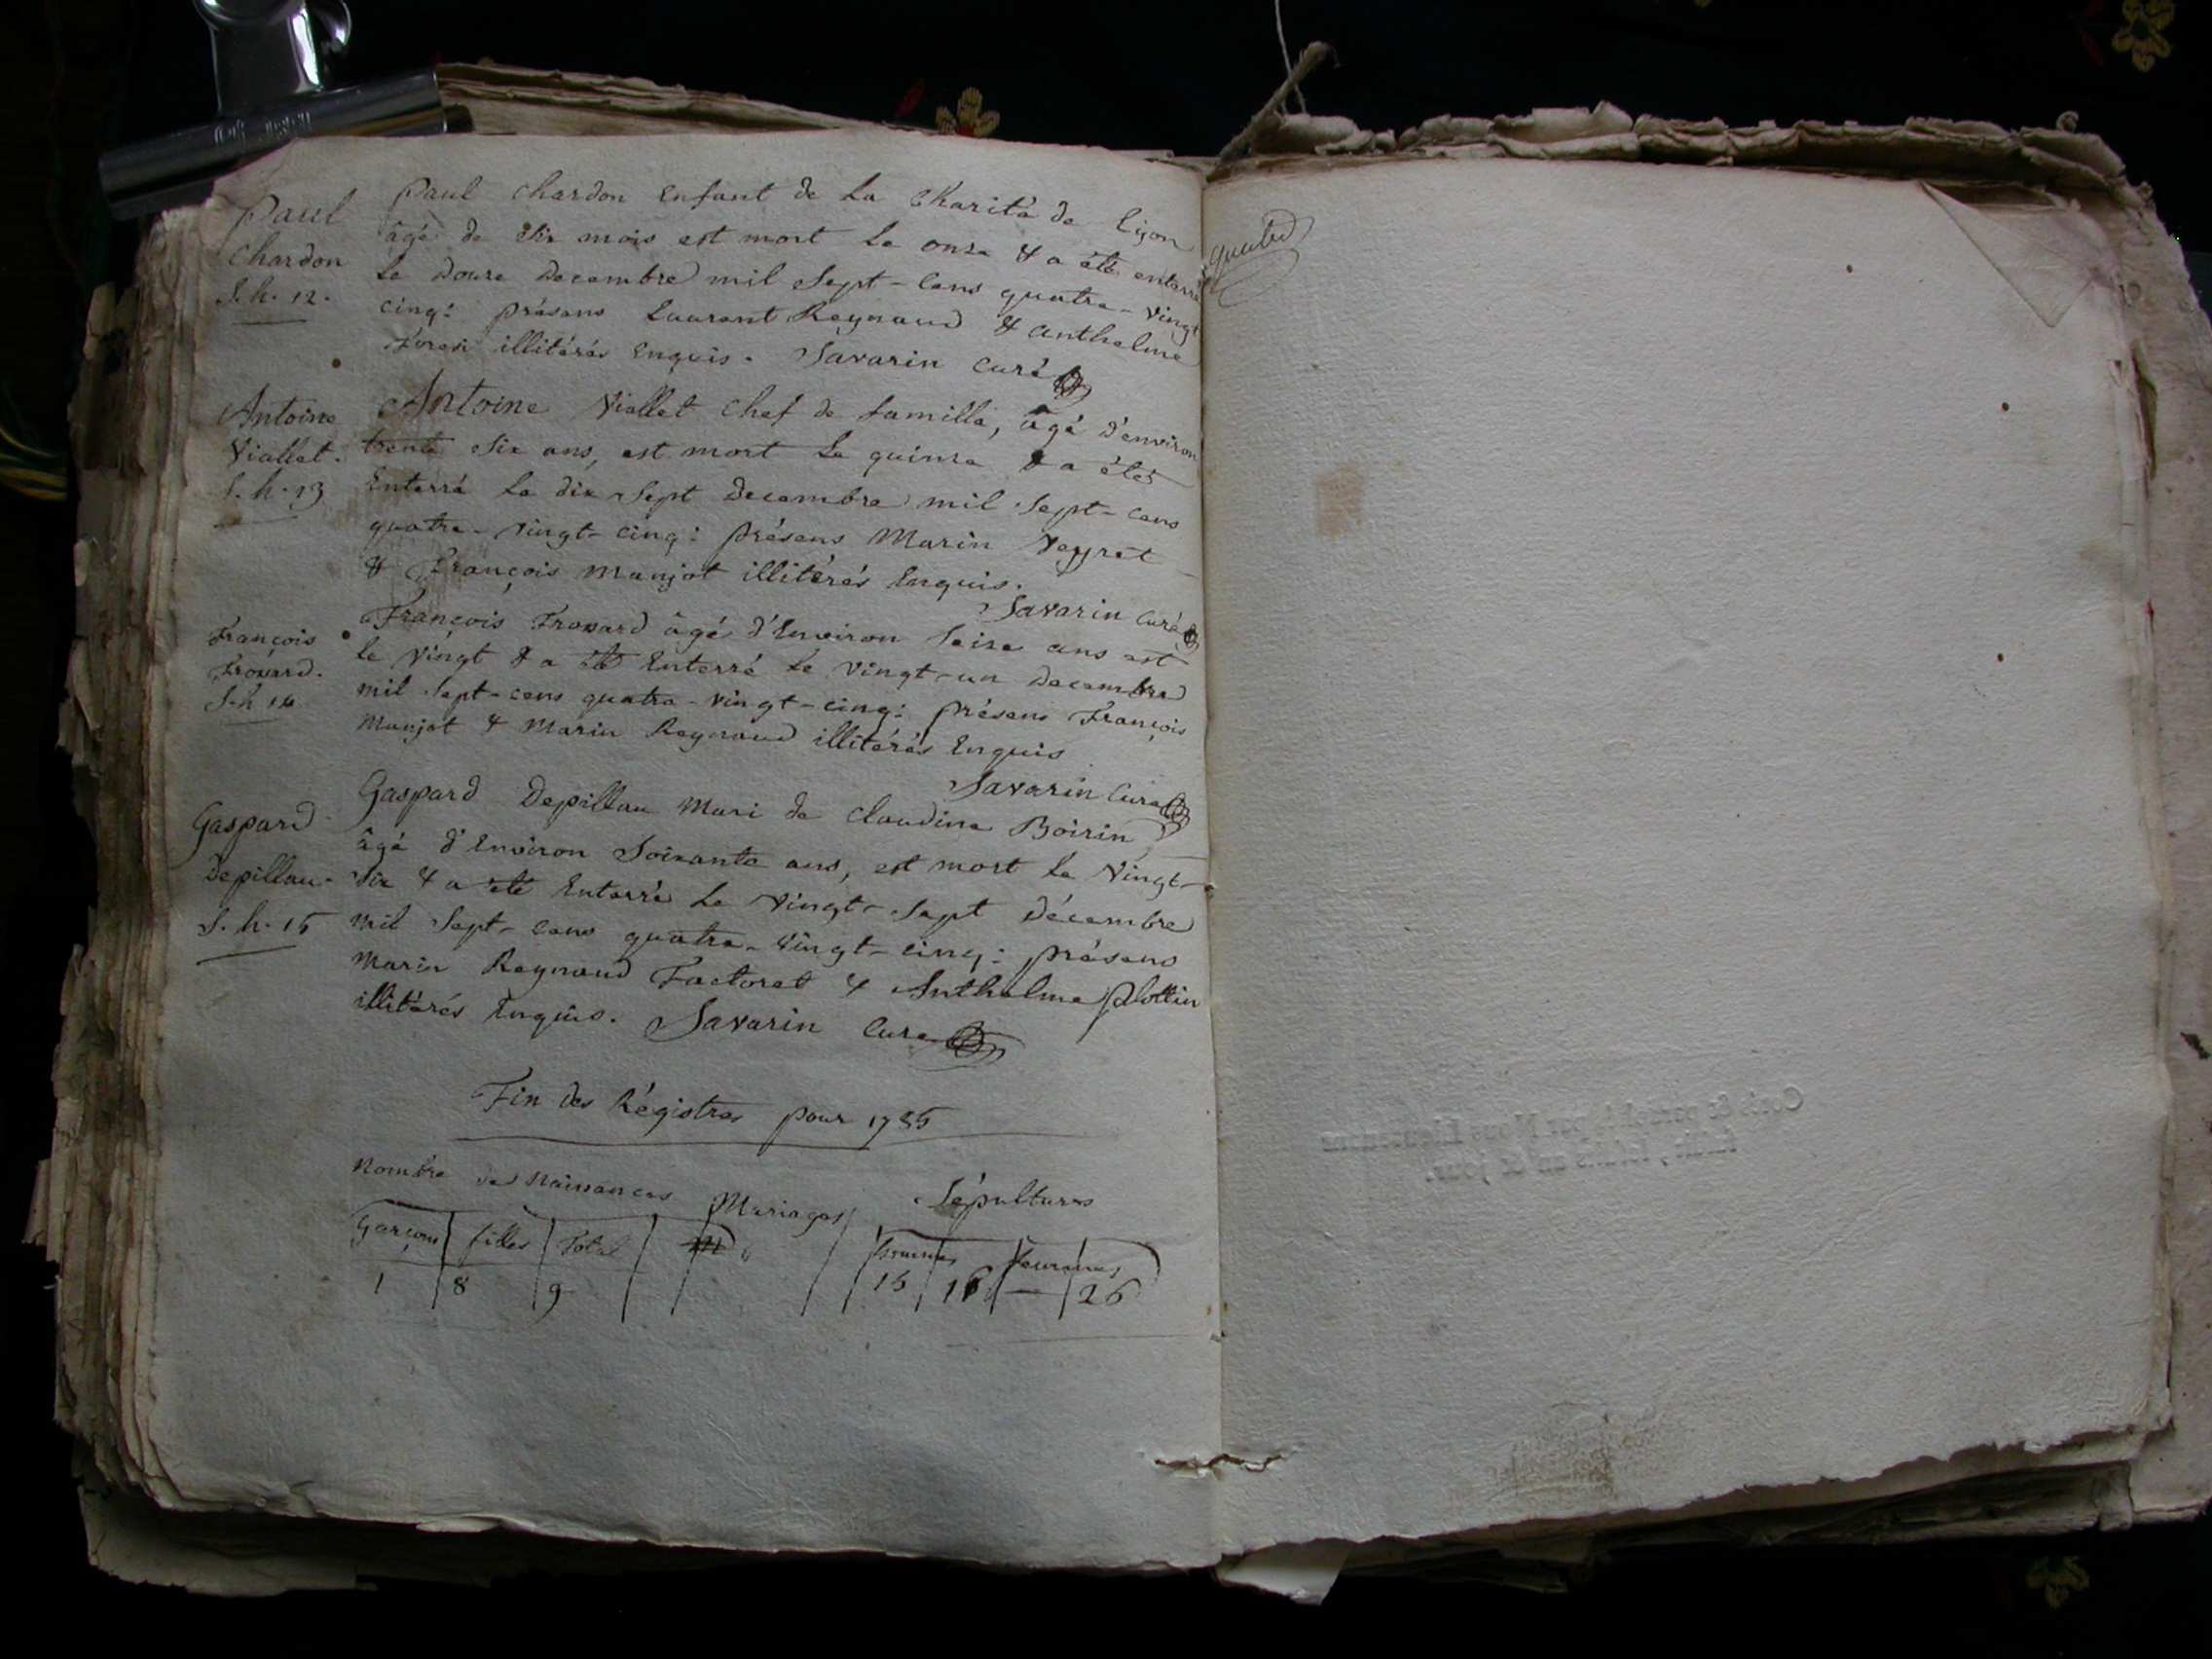 Paul
Chardon
S.h. 12.
Paul Chardon Enfant de la Charité de Lyon
âgé de six mois est mort le onze & a été enterré
le douze decembre mil sept-cens quatre-vingt
cinq: présens Laurent Reynaud & anthelme
illitérés Enquis. Savarin curé
Antoine
Viallet.
S.h. 13
Antoine Viallet chef de famille, âgé d'environ
trente six ans, est mort le quinze & a été
Enterré le dix sept decembre mil sept-cens
quatre-vingt-cinq: présens Marin Veyret
& François Manjot illitérés Enquis.
Savarin curé
François
Frovard.
S.h 14
François Frovard âgé d'Environ seize ans est
le vingt & a été Enterré le vingt-un decembre
mil sept-cens quatre-vingt-cinq: présens François
Manjot & Marin Reynaud illitérés Enquis
Savarin Curé
Gaspard
Depillau.
S.h. 15
Gaspard Depillau Mari de Claudine Boirin
âgé d'Environ soixante ans, est mort le vingt-
six & a été Enterré le vingt-sept décembre
mil sept-cens quatre-vingt-cinq: présens
Marin Reynaud Factoret & Anthelme Plottin
illitérés Enquis. Savarin Curé
Fin des Régistres pour 1785
Nombre des Naissances Mariages Sépultures
garçons filles Total
1 8 9 15 26